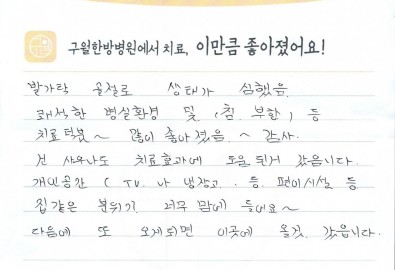 구월한방병원에서 치료, 이만큼 좋아졌어요!
발가락 골절로 상태가 심했음.
쾌적한 병실환경 및 (침. 부항) 등
치료덕분~ 많이 좋아졌음. ~ 감사.
건 사우나도 치료효과에 도움 된거 같습니다.
개인공간 ( TV. 나 냉장고. 등. 편이시설 등
집같은 분위기. 너무 맘에 들어요~
다음에 또 오게되면 이곳에 올것. 같습니다.